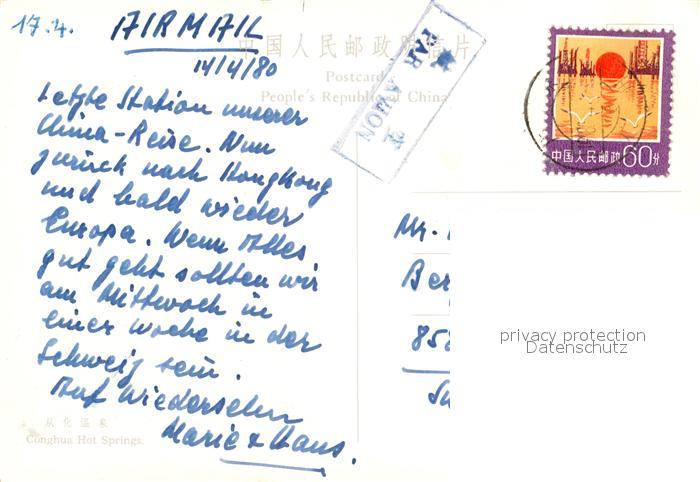 17.4.
AIRMAIL
中国人民邮政明信片
14/4/80
Postcard
People's Republic of China
航空
PAR AVION
中国人民邮政 60分
Letzte Station unserer
China-Reise. Nun
zurück nach Hongkong
und bald wieder
Europa. Wenn Alles
gut geht sollten wir
am Mittwoch in
einer Woche in der
Schweiz sein.
Auf Wiedersehn
Marie + Hans.
从化温泉
Conghua Hot Springs.
Mr.
Ber
858
privacy protection
Datenschutz